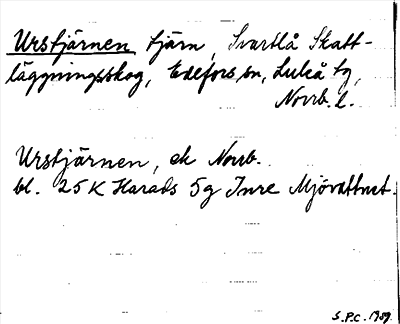 Urstjärnen, tjärn, Svartlå Skatt-
läggningsskog, Edefors sn, Luleå tg,
Norrb. l.
Urstjärnen, ek Norrb.
bl. 25K Harads 5g Inre Mjövattnet.
S.P.C. 1989